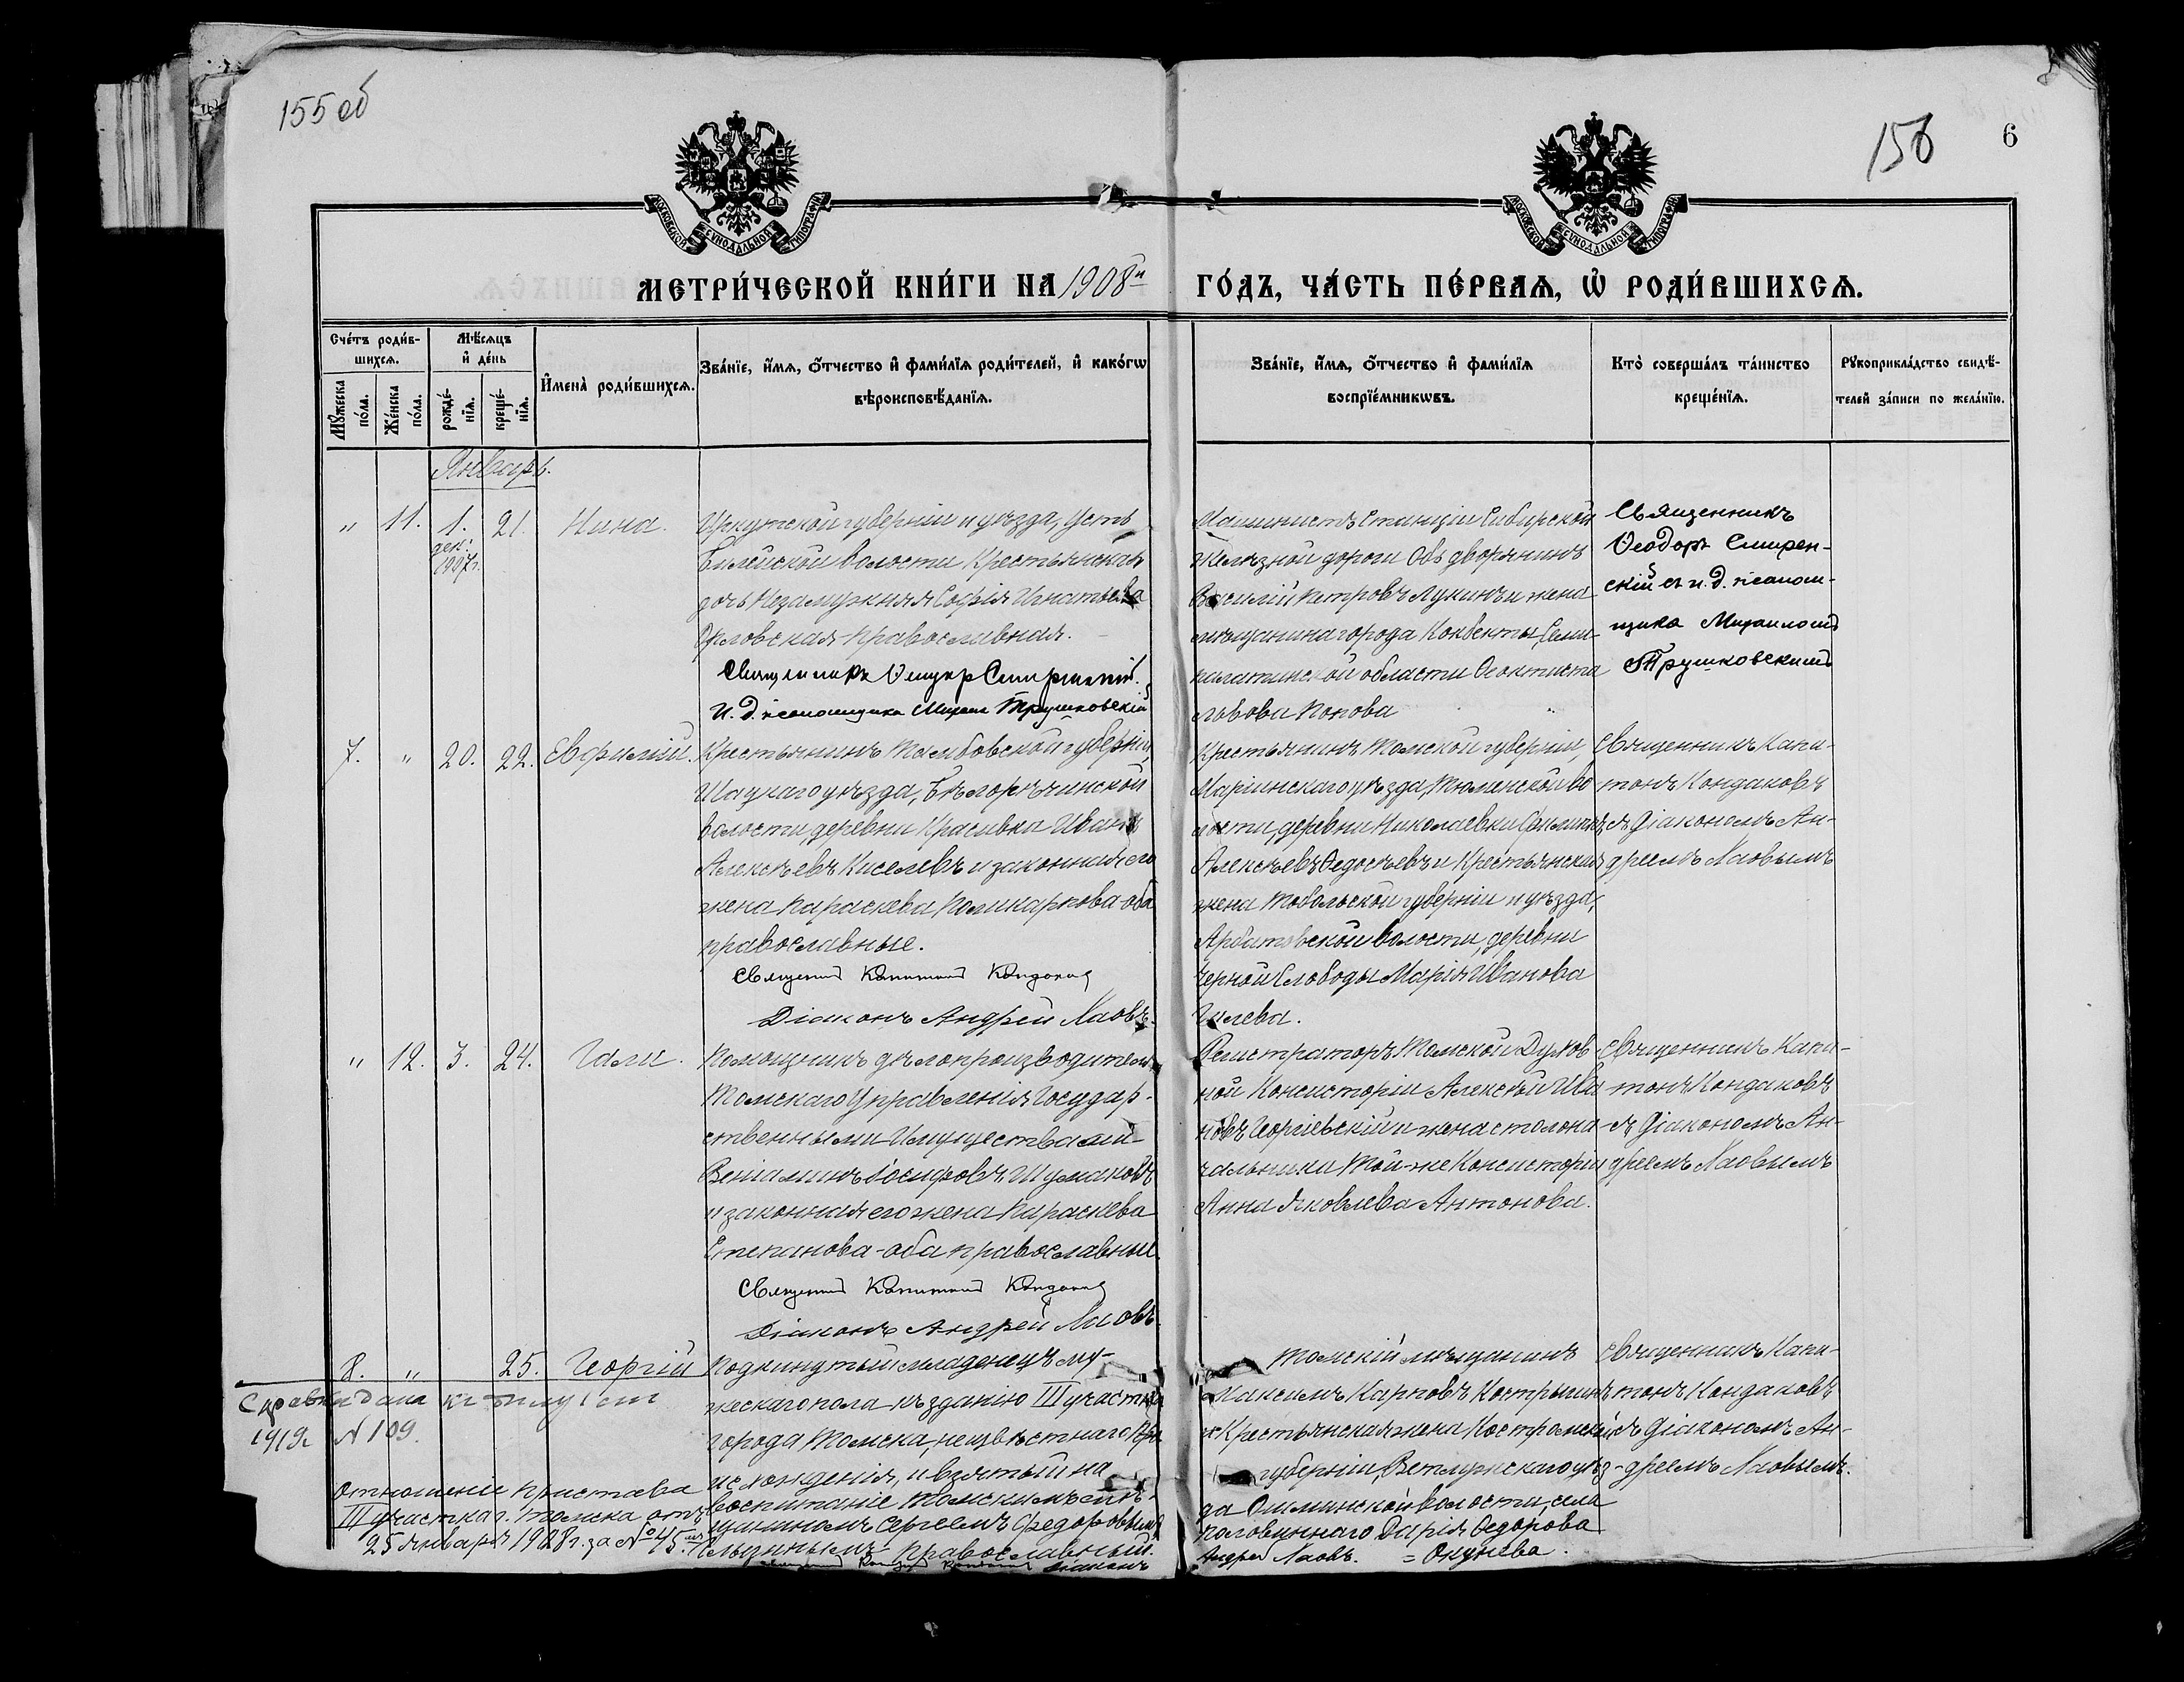 155 об
156
6
МОСКОВСКОЙ СѴНОДАЛЬНОЙ ТИПОГРАФІИ
МОСКОВСКОЙ СѴНОДАЛЬНОЙ ТИПОГРАФІИ
МЕТРИ́ЧЕСКОЙ КНИ́ГИ НА 1908й ГО́ДЪ, ЧА́СТЬ ПЕ́РВАѦ, Ѡ҆ РОДИ́ВШИХСѦ.
Сче́тъ роди́в-
шихсѧ.
Мꙋ́жеска по́ла.
Же́нска по́ла.
Мѣ́сѧцъ
и҆ де́нь
рожде́-
нїѧ.
креще́-
нїѧ.
И҆мена̀ роди́вшихсѧ.
Зва́нїе, и҆́мѧ, о҆́тчество и҆ фами́лїѧ роди́телей, и҆ како́гѡ
вѣроисповѣ́данїѧ.
Зва́нїе, и҆́мѧ, о҆́тчество и҆ фами́лїѧ
воспрїе́мникѡвъ.
Кто̀ соверша́лъ та́инство
креще́нїѧ.
Рꙋкоприкла́дство свидѣ́-
телей за́писи по жела́нїю.
Январь.
" 11. 1. 21. Нина.
дек.
1907г.
Иркутской губерніи и уѣзда, Усть
Билейской волости Крестьянская
дочь Незамужняя Софія Игнатьева
Орловская православная.
Священникъ Ѳеодоръ Смиренскій.
И. д. псаломщика Михаил Трушковскій
Машинистъ Станціи Сибирской
желѣзной дороги Объ дворянинъ
Василій Петровъ Лукинъ и жена
мѣщанина города Кокбекты, Семи-
палатинской области Ѳеоктиста
Львова Попова
Священникъ
Ѳеодоръ Смирен-
скій съ и. д. псалом-
щика Михаиломъ
Трушковскимъ
7. " 20. 22. Евфимій.
Крестьянинъ Тамбовской губерніи,
Шацкаго уѣзда, Бѣлорѣчинской
волости, деревни Красивки Иванъ
Алексѣевъ Киселевъ и законная его
жена Параскева Поликарпова-оба
православные.
Священникъ Капитонъ Кондаковъ
Діаконъ Андрей Лаовъ.
Крестьянинъ Томской губерніи,
Маріинскаго уѣзда, Тюменской во-
лости, деревни Николаевки Филиппъ
Алексѣевъ Ѳедосѣевъ и Крестьянская
жена Тобольской губерніи и уѣзда,
волости, деревни
Черной Слободы Марія Иванова
Гилева.
Священникъ Капи-
тонъ Кондаковъ
съ Діакономъ Ан-
дреемъ Лаовымъ
" 12. 3. 24. Гали.
Помощникъ дѣлопроизводителя
Томскаго Управленія Государ-
ственными Имуществами
Веніаминъ Іосифовъ Шумаковъ
и законная его жена Параскева
Степанова-оба православные.
Священникъ Капитонъ Кондаковъ
Діаконъ Андрей Лаовъ.
Регистраторъ Томской Духов-
ной Консисторіи Алексѣй Ива-
новъ Георгіевскій и жена столона-
чальника той-же Консисторіи
Анна Яковлева Антонова.
Священникъ Капи-
тонъ Кондаковъ
съ Діакономъ Ан-
дреемъ Лаовымъ
8. " 25. Георгій
Подкинутый младенецъ му-
жескаго пола къ зданію III участка
города Томска, неизвѣстнаго про
исхожденія, и взятый на
воспитаніе Томскимъ мѣ-
щаниномъ Сергеемъ Федоровымъ
православный.
Діаконъ
Томскій мѣщанинъ
Максимъ Карповъ Кострыкинъ
и Крестьянская жена Костромской
губерніи, Ветлужскаго уѣз-
да волости, села
Половиннаго Дарія Ѳедорова
Андрей Лаовъ. = Окунева.
Священникъ Капи-
тонъ Кондаковъ
съ Діакономъ Ан-
дреемъ Лаовымъ.
Справка дана
1919г N 109.
Отношеніе Пристава
III участка г. Томска отъ
25 января 1908 г. за №45.